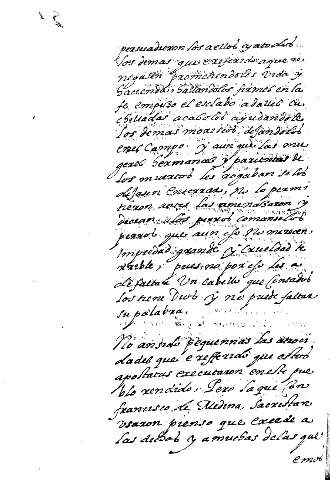 persuadieron los a ellos y a todos
los demas que e referido a que re
negasen prometiendoles vida y
hacienda, hallandolos firmes en la
fe empeso el esclabo a dalles cu
chilladas acabolos ayudandole
los demas moriscos, dejandolos
en el Campo. y aunque las mu
geres hermanas y parientas de
los muertos les rogaban se los
dejasen enterrar, No lo permi
tieron antes las amenasaron y
decian a los perros comanselos
perros que aun eso No merecen
Impiedad grande y Crueldad te
rrible, pues no por eso les a
de faltar Un cabello que Contados
los tiene Dios y no puede faltar
su palabra.
No an sido pequennas las atroci
dades que e referido que estos
apostatas executaron en este pue
blo rendido, Pero la que con
francisco de Medina, Sacristan
usaron pienso que excede a
las dichas y a muchas de las que
emos